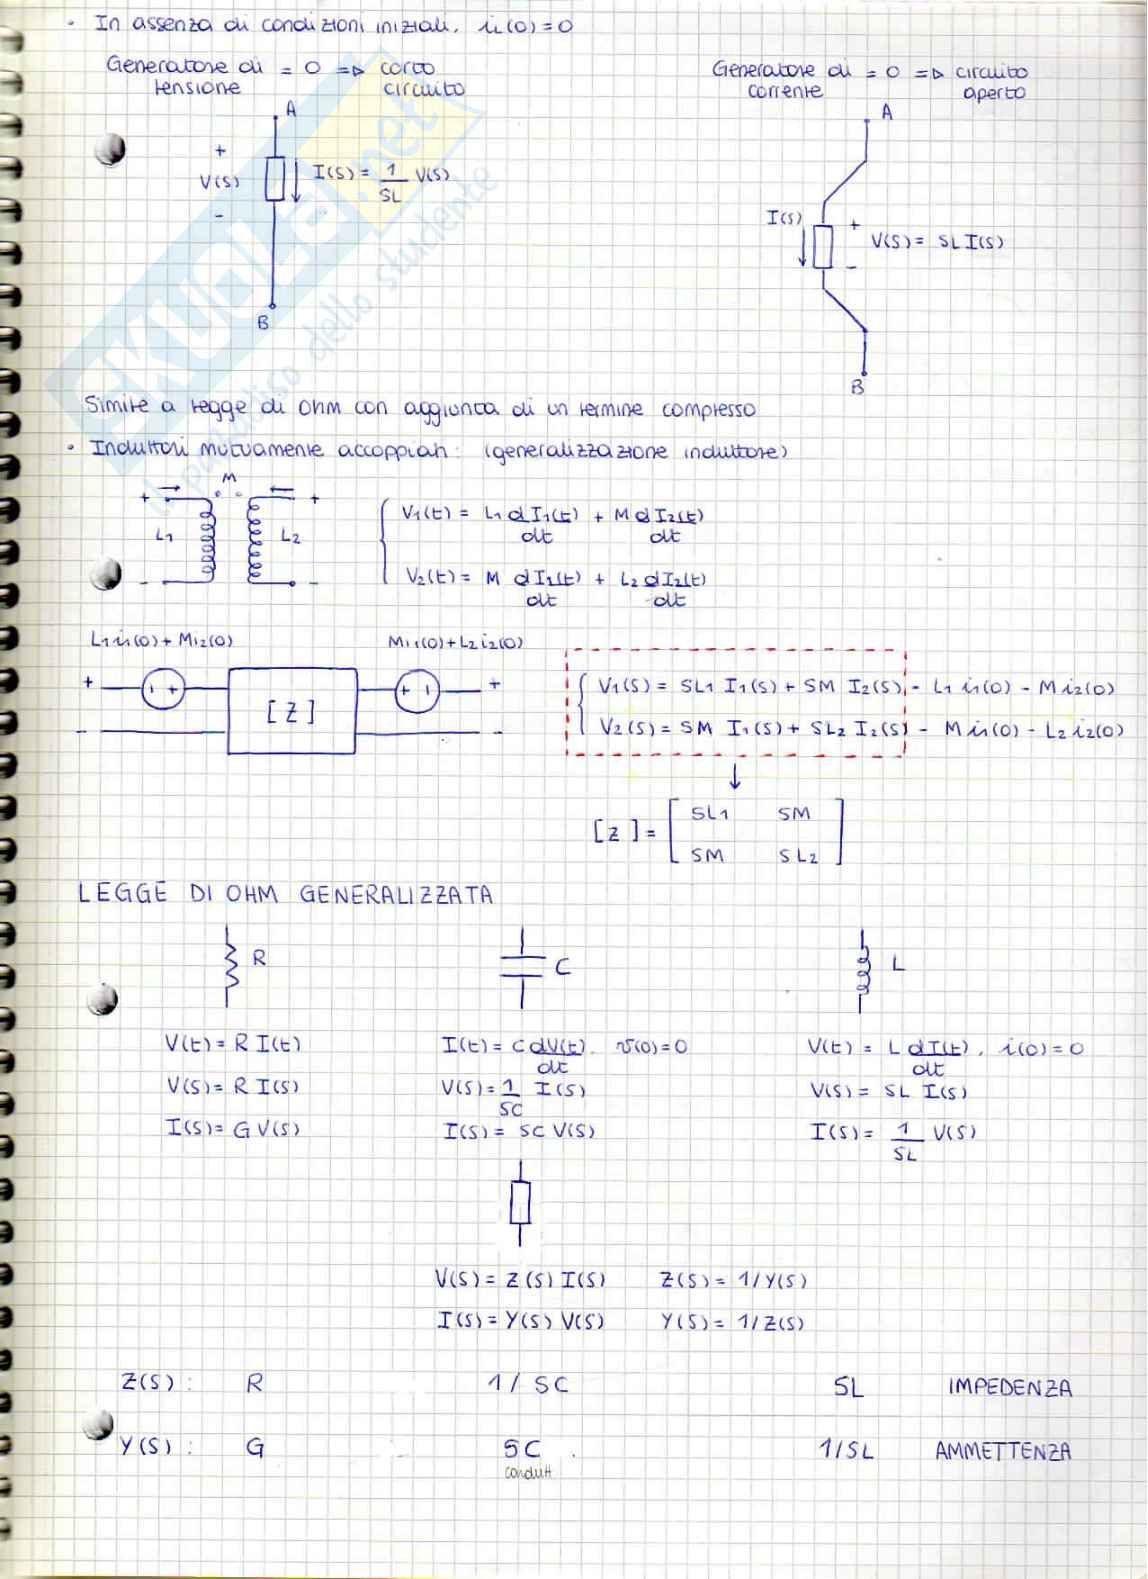 • In assenza di condizioni iniziali, iL(0)=0
Generatore di tensione = 0 => corto circuito
Generatore di corrente = 0 => circuito aperto
A
+
V(S)
-
I(S) = 1/SL V(S)
B
A
I(S)
+
-
V(S) = SL I(S)
B
Simile a legge di Ohm con aggiunta di un termine complesso
• Induttori mutuamente accoppiati: (generalizzazione induttore)
+ M +
L1 L2
- -
V1(t) = L1 dI1(t)/dt + M dI2(t)/dt
V2(t) = M dI1(t)/dt + L2 dI2(t)/dt
L1 i1(0) + Mi2(0)
Mi1(0) + L2 i2(0)
+ - + [Z] + - +
- -
V1(S) = SL1 I1(S) + SM I2(S) - L1 i1(0) - M i2(0)
V2(S) = SM I1(S) + SL2 I2(S) - M i1(0) - L2 i2(0)
↓
[Z] = [ SL1 SM
SM SL2 ]
LEGGE DI OHM GENERALIZZATA
R C L
V(t) = R I(t)
I(t) = C dV(t)/dt, v(0)=0
V(t) = L dI(t)/dt, i(0)=0
V(S) = R I(S)
V(S) = 1/SC I(S)
V(S) = SL I(S)
I(S) = G V(S)
I(S) = SC V(S)
I(S) = 1/SL V(S)
V(S) = Z(S) I(S) Z(S) = 1/Y(S)
I(S) = Y(S) V(S) Y(S) = 1/Z(S)
Z(S): R 1/SC SL IMPEDENZA
Y(S): G SC 1/SL AMMETTENZA
condutt
SKUOLA.net
il paradiso dello studente